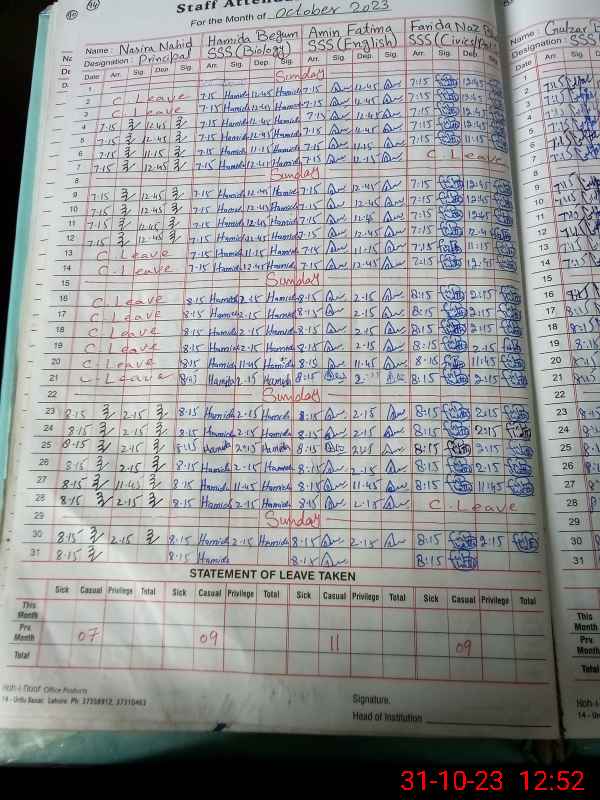 Staff Atten
For the Month of October 2023
Name : Nasira Nahid Hamida Begum Amin Fatima Farida Naz Name : Gulzar
Designation : Principal SSS (Biology) SSS (English) SSS (Civics) Designation : SSS
Date Arr. Sig. Dep. Sig. Arr. Sig. Dep. Sig. Arr. Sig. Dep. Sig. Arr. Sig. Dep. Sig. Date Arr.
1 Sunday 1
2 C. Leave 7.15 Hamida 12.45 Hamida 7.15 12.45 7.15 12.45 2
3 C. Leave 7.15 Hamida 12.45 Hamida 7.15 12.45 7.15 12.45 3
4 7.15 12.45 7.15 Hamida 12.45 Hamida 7.15 12.45 7.15 12.45 4
5 7.15 12.45 7.15 Hamida 12.45 Hamida 7.15 12.45 7.15 12.45 5
6 7.15 11.15 7.15 Hamida 11.15 Hamida 7.15 11.15 7.15 11.15 6
7 7.15 12.45 7.15 Hamida 12.45 Hamida 7.15 11.15 C. Leave 7
8 Sunday 8
9 7.15 12.45 7.15 Hamida 12.45 Hamida 7.15 12.45 7.15 12.45 9
10 7.15 12.45 7.15 Hamida 12.45 Hamida 7.15 12.45 7.15 12.45 10
11 7.15 12.45 7.15 Hamida 12.45 Hamida 7.15 12.45 7.15 12.45 11
12 7.15 12.45 7.15 Hamida 12.45 Hamida 7.15 12.45 7.15 12.45 12
13 C. Leave 7.15 Hamida 11.15 Hamida 7.15 11.15 7.15 11.15 13
14 C. Leave 7.15 Hamida 12.45 Hamida 7.15 12.45 7.15 12.45 14
15 Sunday 15
16 C. Leave 8.15 Hamida 2.15 Hamida 8.15 2.15 8:15 2:15 16
17 C. Leave 8.15 Hamida 2.15 Hamida 8.15 2.15 8:15 2.15 17
18 C. Leave 8.15 Hamida 2.15 Hamida 8.15 2.15 8:15 2.15 18
19 C. Leave 8.15 Hamida 2.15 Hamida 8.15 2.15 8:15 2.15 19
20 C. Leave 8.15 Hamida 11.45 Hamida 8.15 11.45 8.15 11.45 20
21 C. Leave Hamida 2.15 Hamida 8:15 8:15 2:15 21
22 Sunday 22
23 8.15 2.15 8.15 Hamida 2.15 Hamida 8.15 2.15 8:15 2:15 23
24 8.15 2.15 8.15 Hamida 2.15 Hamida 8.15 2.15 8:15 2:15 24
25 8.15 2.15 8.15 Hamida 2:15 Hamida 8:15 8:15 2:15 25
26 8.15 2.15 8.15 Hamida 2.15 Hamida 8.15 2.15 8:15 2.15 26
27 8.15 11.45 8.15 Hamida 11.45 Hamida 8.15 11.45 8:15 11:45 27
28 8.15 2.15 8.15 Hamida 2.15 Hamida 8.15 2.15 C. Leave 28
29 Sunday 29
30 8.15 2.15 8.15 Hamida 2.15 Hamida 8.15 2.15 8:15 2:15 30
31 8.15 8.15 Hamida 8.15 8:15 31
STATEMENT OF LEAVE TAKEN
Sick Casual Privilege Total Sick Casual Privilege Total Sick Casual Privilege Total Sick Casual Privilege Total
This Month This Month
Prv. Month 07 09 11 09 Prv. Month
Total Total
Koh-i-Noor Office Products
14 - Urdu Bazar, Lahore. Ph: 37358912, 37310463
Signature.
Head of Institution
31-10-23 12:52